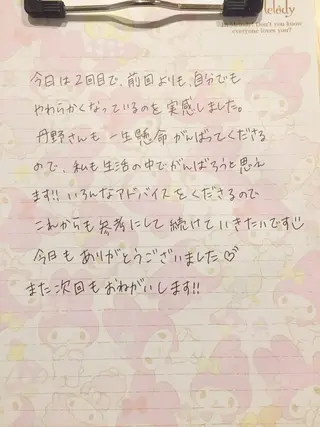 Melody
Don't you know
everyone loves you?
今日は2回目で、前回よりも、自分でも
やわらかくなっているのを実感しました。
丹野さんも一生懸命がんばってくださる
ので、私も生活の中でがんばろうと思え
ます!! いろんなアドバイスをくださるので
これからも参考にして続けていきたいです
今日もありがとうございました♡
また次回もおねがいします!!